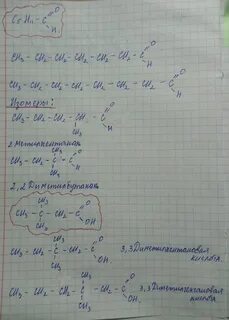 C₆H₁₁ – C
O
H
CH₃ – CH₂ – CH₂ – CH₂ – CH₂ – CH₂ – C
O
H
CH₃ – CH₂ – CH₂ – CH₂ – CH₂ – CH₂ – CH₂ – C
O
H
Изомеры:
CH₃ – CH₂ – CH₂ – CH – C
O
H
CH₃
2 метилпентаналь
CH₃
CH₃ – CH₂ – C – C
O
H
CH₃
2,2 Диметилбутаналь
CH₃
CH₃ – C – CH₂ – C
O
OH
CH₃
CH₃
CH₃ – CH₂ – C – CH₂ – C
O
OH
CH₃
3,3 Диметилпентановая
кислота
CH₃
CH₃ – CH₂ – CH₂ – C – CH₂ – C
O
OH
CH₃
3,3 Диметилгексановая
кислота